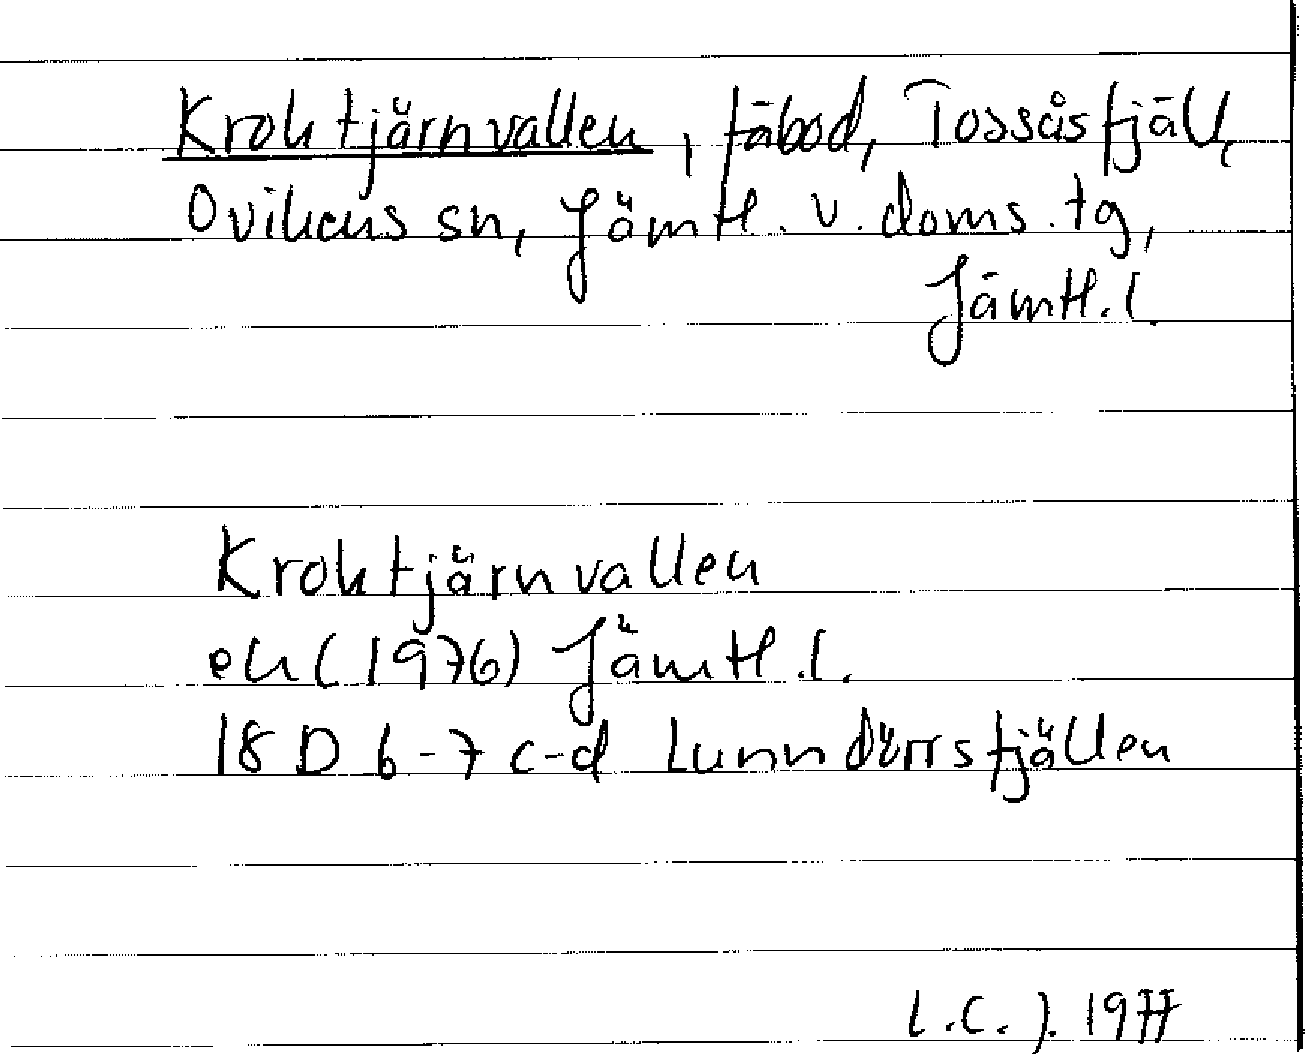 Kroktjärnvallen, fäbod, Tossåsfjäll,
Ovikens sn, Jämtl. v. doms. tg,
Jämtl. l.
Kroktjärnvallen
ek (1976) Jämtl. l.
18 D 6-7 c-d Lunndörrsfjällen
L.C.J. 1977